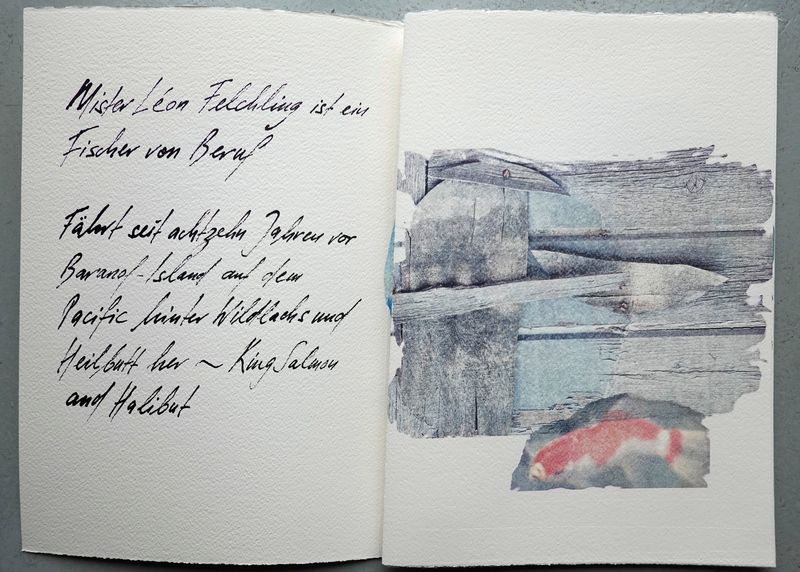 Mister Léon Felchling ist ein
Fischer von Beruf
Fährt seit achtzehn Jahren vor
Baranof-Island auf dem
Pacific hinter Wildlachs und
Heilbutt her ~ King Salmon
and Halibut